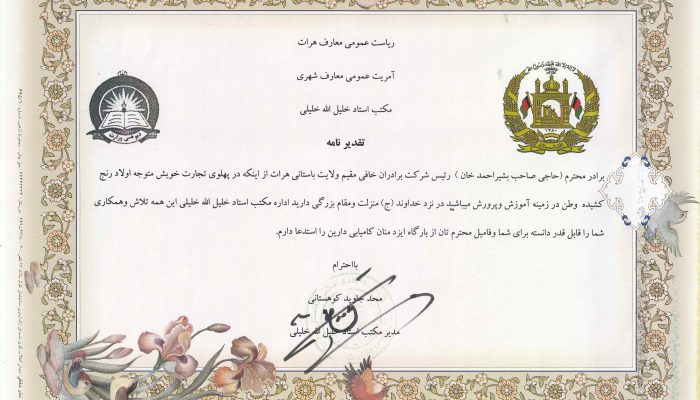 ریاست عمومی معارف هرات
آمریت عمومی معارف شهری
مکتب استاد خلیل الله خلیلی
تقدیر نامه
برادر محترم (حاجی صاحب بشیراحمد خان ) رئیس شرکت برادران خافی مقیم ولایت باستانی هرات از اینکه در پهلوی تجارت خویش متوجه اولاد رنج
کشیده وطن در زمینه آموزش وپرورش میباشید در نزد خداوند (ج) منزلت ومقام بزرگی دارید اداره مکتب استاد خلیل الله خلیلی این همه تلاش وهمکاری
شما را قابل قدر دانسته برای شما وفامیل محترم تان از بارگاه ایزد منان کامیابی دارین را استدعا دارم.
بااحترام
محمد جاوید کوهستانی
مدیر مکتب استاد خلیل الله خلیلی